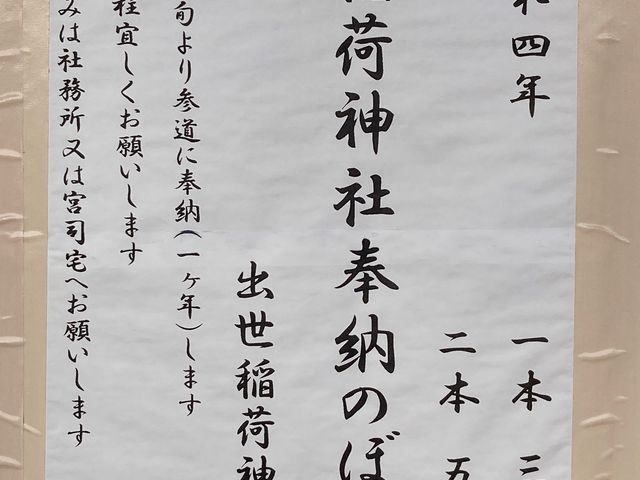 四年
一本
二本 五
荷神社奉納のぼ
出世稲荷神
旬より参道に奉納(一ヶ年)します
程宜しくお願いします
みは社務所又は宮司宅へお願いします